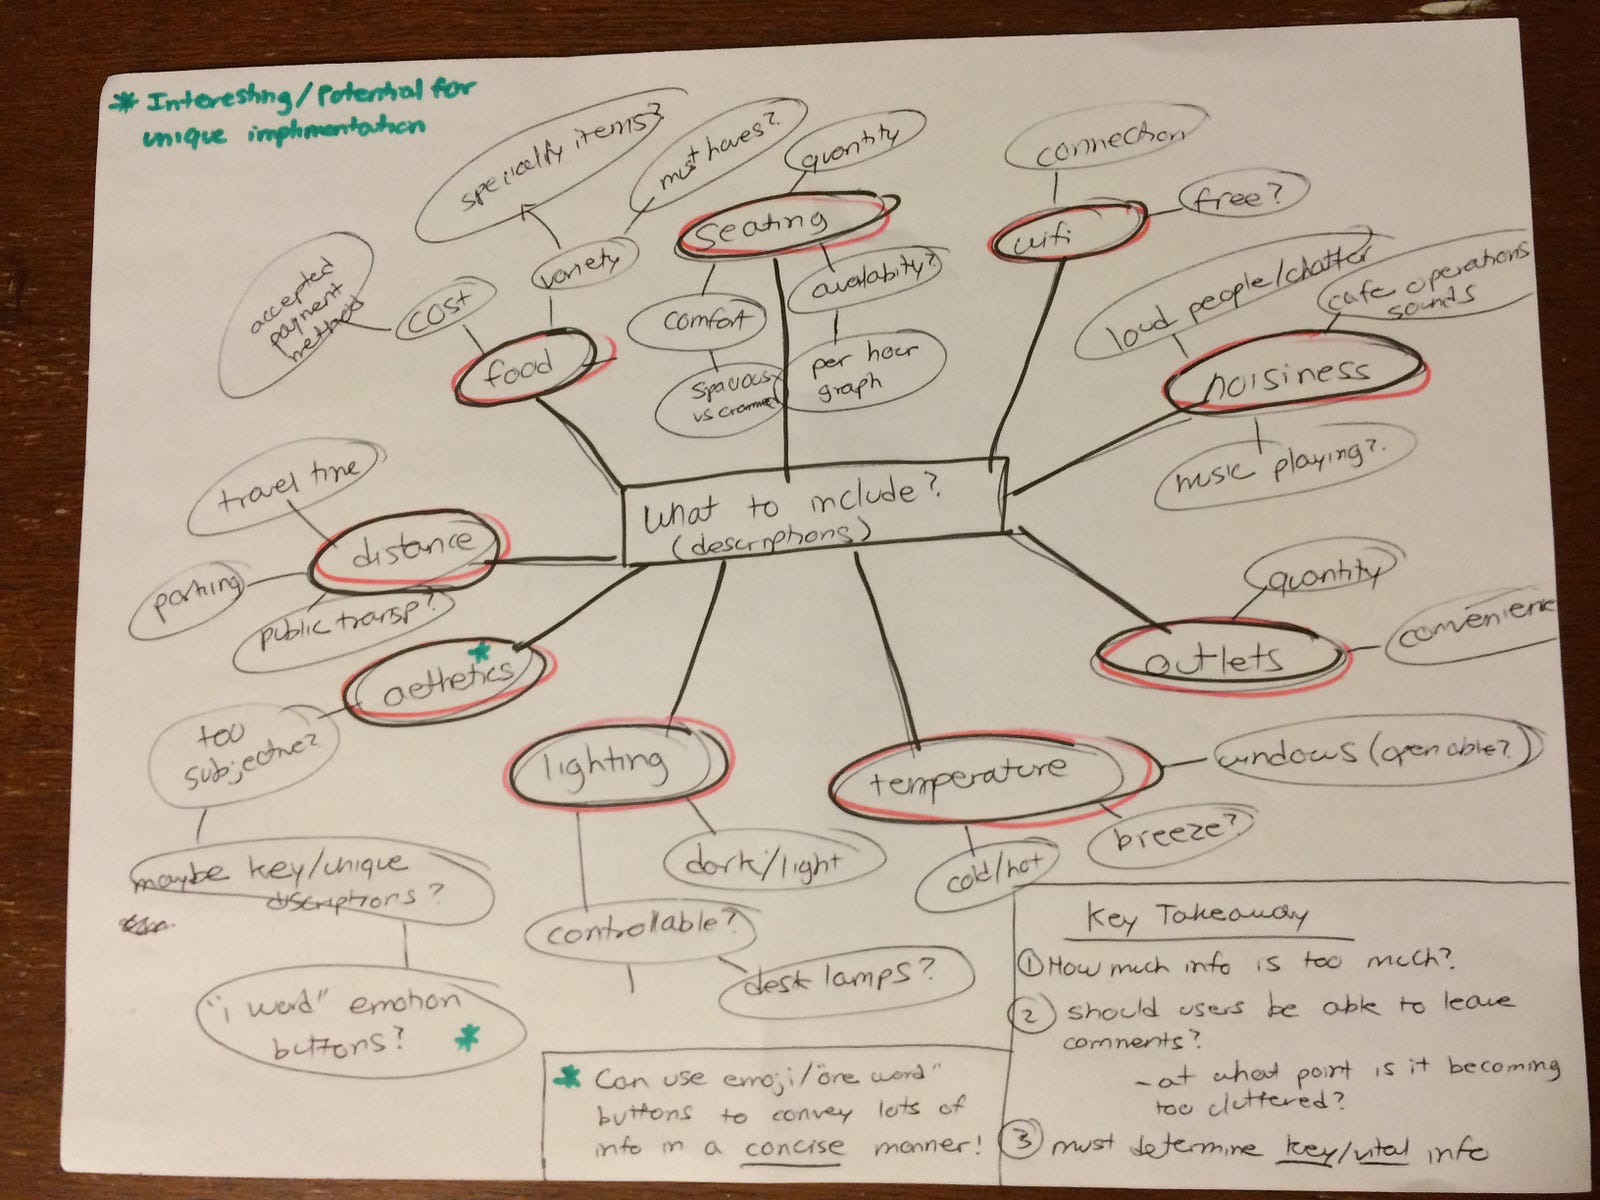 * Interesting/Potential for
unique implimentation
specialty items?
must haves?
variety
accepted
payment
methods
cost
food
quantity
seating
comfort
availabity?
spacious
vs cramme
per hour
graph
connection
wifi
free?
loud people/chatter
cafe operations
sounds
noisiness
music playing?
What to include?
(descriptions)
travel time
distance
parking
public transp?
aethetics *
too
subjective?
maybe key/unique
discriptions?
"1 word" emotion
buttons? *
lighting
dark/light
controllable?
desk lamps?
temperature
windows (openable?)
breeze?
cold/hot
quantity
outlets
convenience
* Can use emoji/"one word"
buttons to convey lots of
info in a concise manner!
Key Takeaway
① How much info is too much?
② should users be able to leave
comments?
- at what point is it becoming
too cluttered?
③ must determine key/vital info